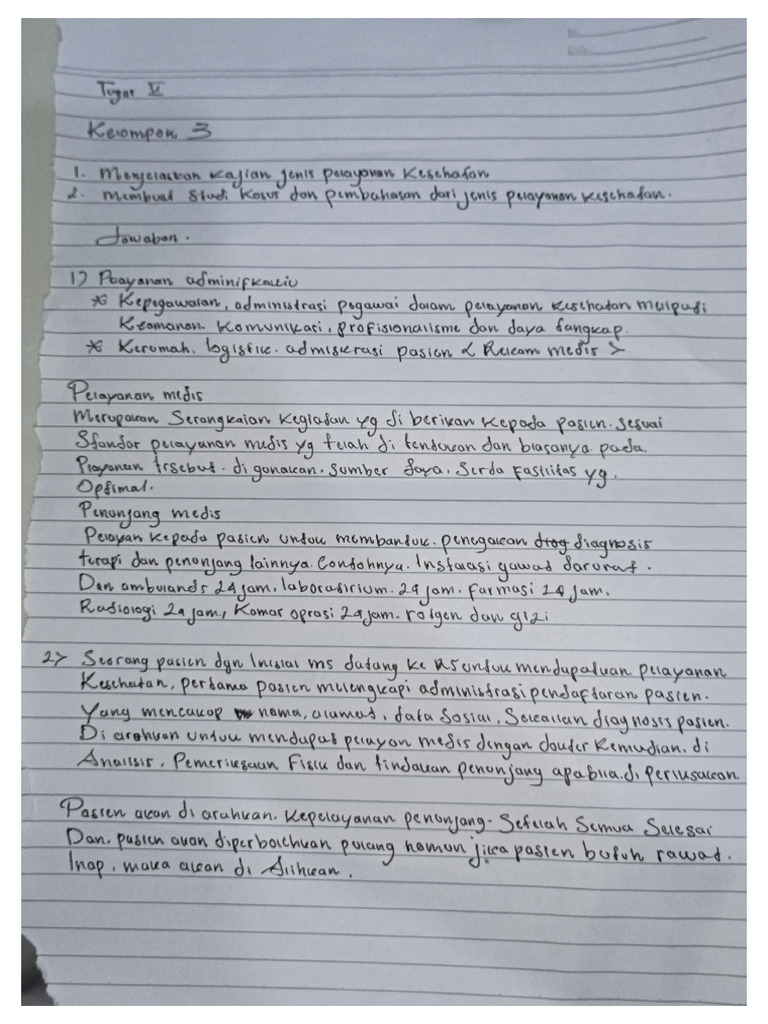 Tugas V
Kelompok 3
1. Menjelaskan Kajian jenis pelayanan Kesehatan
2. Membuat Studi Kasus dan pembahasan dari jenis pelayanan kesehatan.
Jawaban.
1) Pelayanan administratif
* Kepegawaian, administrasi pegawai dalam pelayanan kesehatan meliputi
Keamanan. Komunikasi, profisionalisme dan daya tangkap.
* Kerumah, logistik. admiskrasi pasien < Rekam medis >
Pelayanan medis
Merupakan Serangkaian Kegiatan yg di berikan kepada pasien. sesuai
Standar pelayanan medis yg telah di tentukan dan biasanya pada.
Playanan trsebut. di gunakan. sumber daya, Serda Fasilitas yg.
Optimal.
Penunjang medis
Pelayan kepada pasien untuk membantuk. penegakan diagnosis
terapi dan penunjang lainnya. Contohnya. Instalasi gawat darurat.
Dan ambulands 24 jam, laboratirium. 24 jam. farmasi 24 jam.
Radiologi 24 jam, Kamar oprasi 24 jam. rotgen dan gizi
2) Seorang pasien dgn Inisial ms datang ke RS untuk mendapatkan pelayanan
Kesehatan, pertama pasien melengkapi administrasi pendaftaran pasien.
Yang mencakup nama, alamat, data Sosial, Selallan diagnosis pasien.
Di arahkan untuk mendapat pelayan medis dengan dokter kemudian. di
Analisis, Pemeriksaan Fisik dan tindakan penunjang apabila di periksakan
Pasien akan di arahkan. kepelayanan penunjang. Setelah Semua Selesai
Dan. pasien akan diperbolehkan pulang namun jika pasien butuh rawat.
Inap, maka akan di Alihkan.